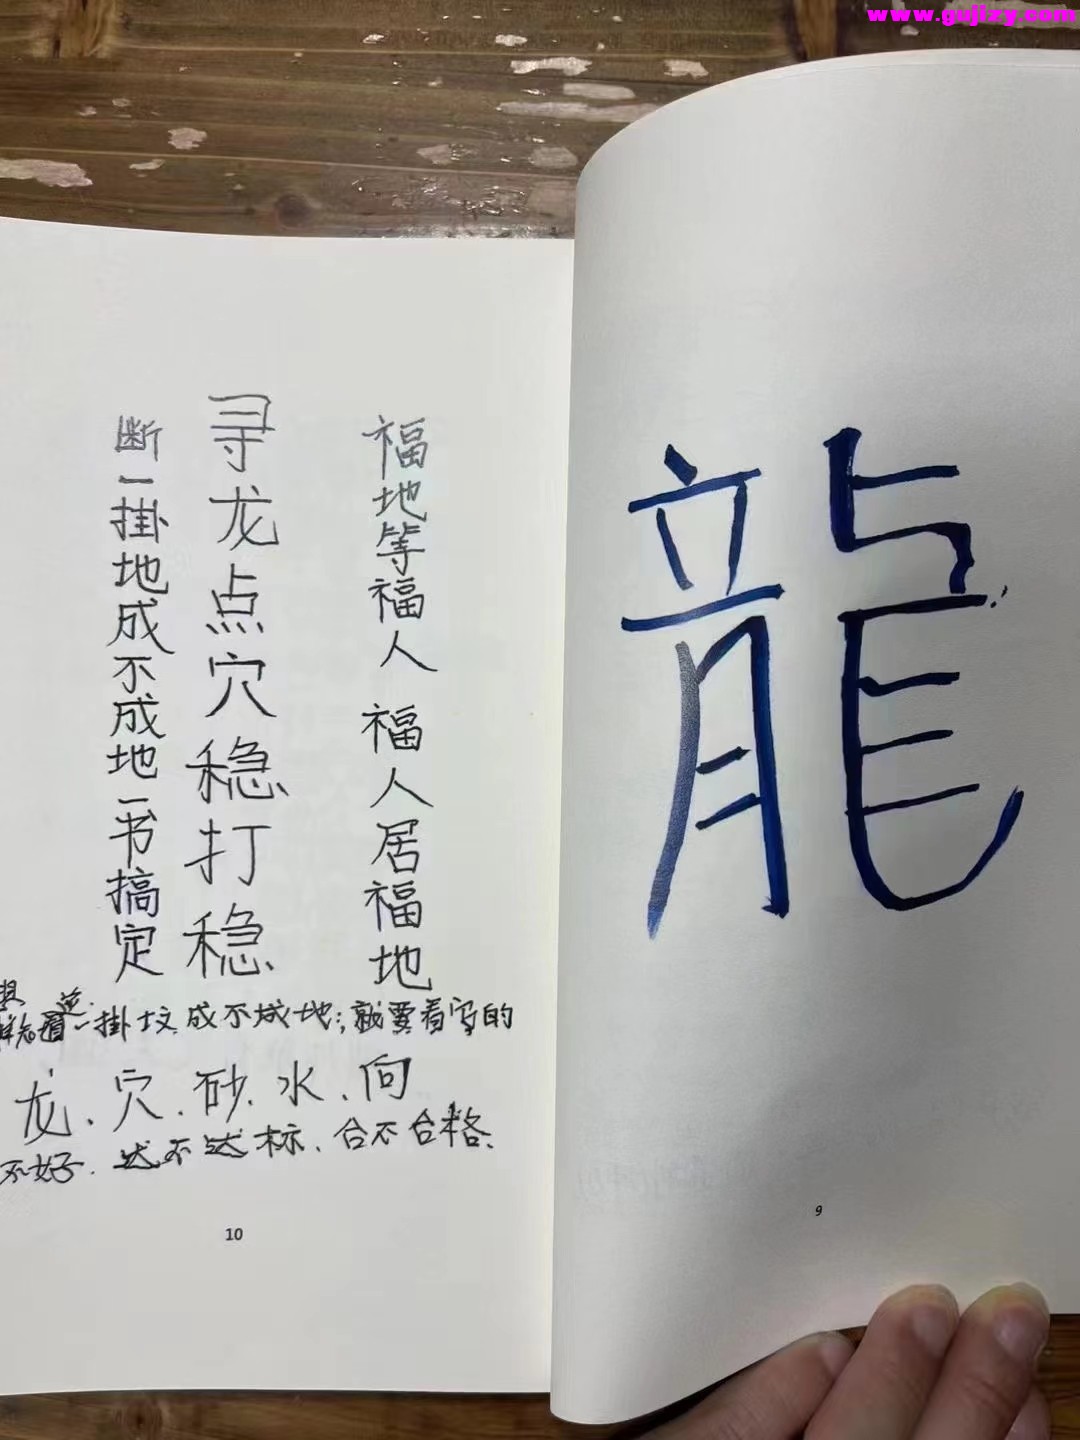 www.gujizy.com
龍
9
福地等福人 福人居福地
寻龙点穴稳打稳
断一掛地成不成地一书搞定
一掛坟成不成地;就要看写的
龙、穴、砂、水、向
不好、达不达标、合不合格、
10